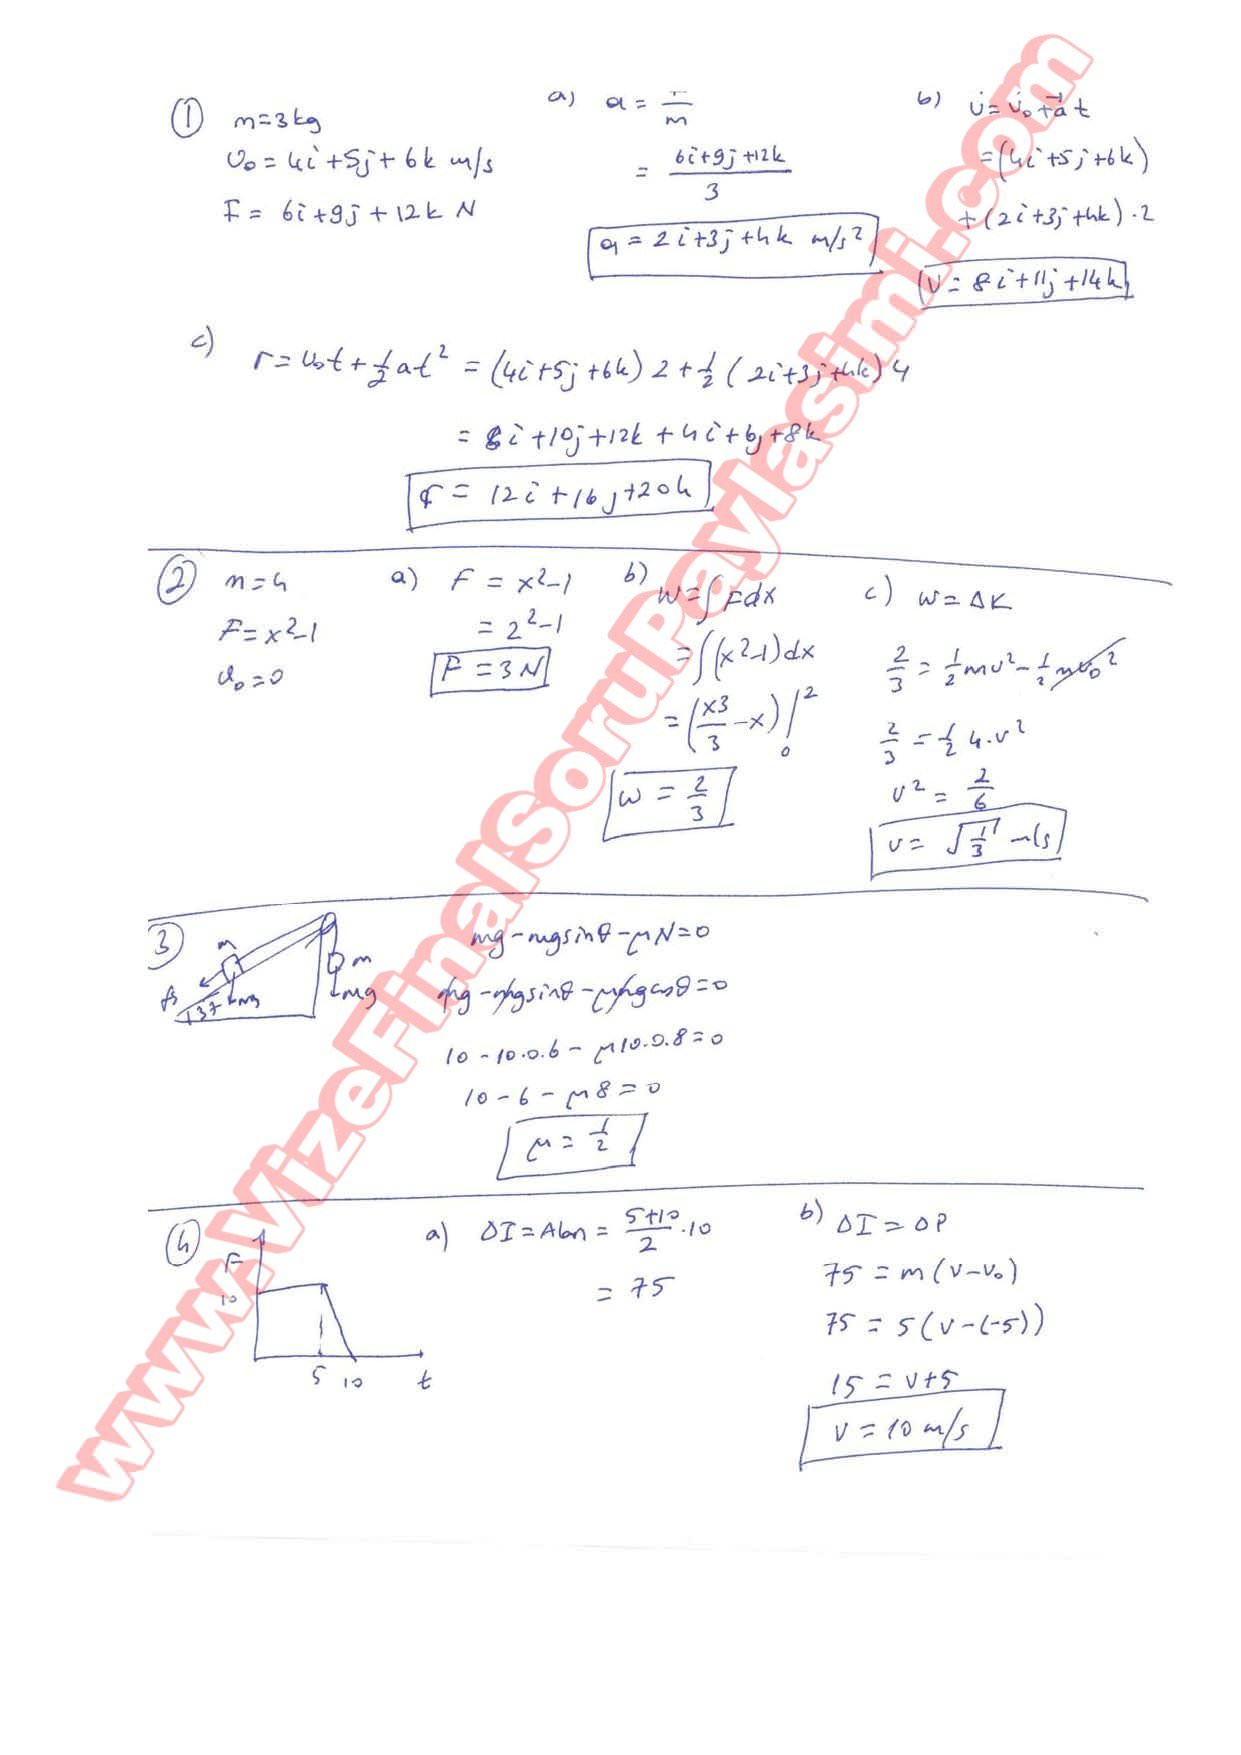 ① m=3kg
v₀ = 4i+5j+6k m/s
F = 6i+9j+12k N
a) a = F/m
= (6i+9j+12k)/3
a = 2i+3j+4k m/s²
b) v = v₀+at
=(4i+5j+6k)
+(2i+3j+4k)·2
v = 8i+11j+14k
c) r = v₀t+½at² = (4i+5j+6k)2+½(2i+3j+4k)4
= 8i+10j+12k+4i+6j+8k
r = 12i+16j+20k
② m=4
F=x²-1
v₀=0
a) F = x²-1
= 2²-1
F = 3N
b) W=∫Fdx
=∫(x²-1)dx
=(x3/3-x)|₀²
W = 2/3
c) W=ΔK
2/3 = ½mv²-½mv₀²
2/3 = ½4.v²
v² = 2/6
v = √(1/3) m/s
③
m
m
mg
mg
fs
37
mg-mgsinθ-μN=0
mg-mgsinθ-μmgcosθ=0
10-10.0.6-μ10.0.8=0
10-6-μ8=0
μ = ½
④
F
10
5 10 t
a) ΔI=Alan = (5+10)/2 .10
= 75
b) ΔI=ΔP
75 = m(v-v₀)
75 = 5(v-(-5))
15 = v+5
v = 10 m/s
www.VizeFinalSoruPaylasimi.com